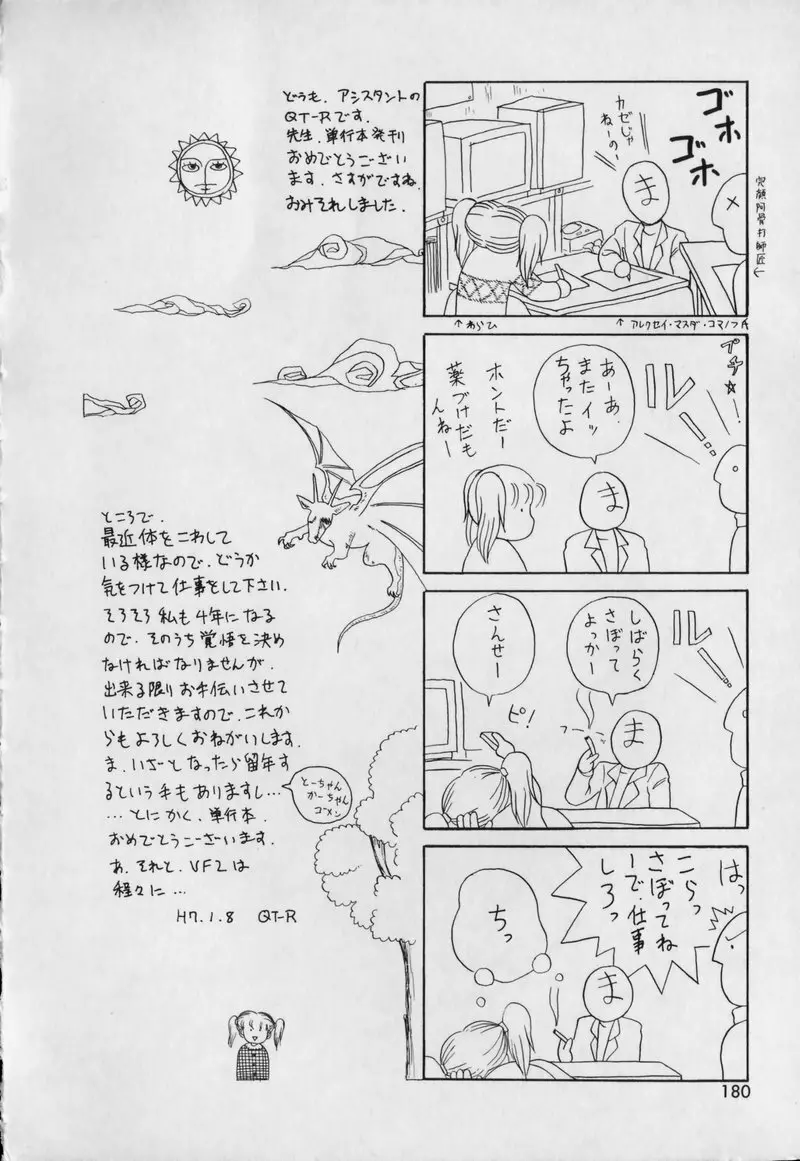 ゴホ
ゴホ
カゼじゃ
ねーの?
ま
師匠←
↑わらひ
↑アレクセイ・マスダ・コマノフ氏
プチ☆
ル
ー!
あーあ、
またイッ
ちゃったよ
ホントだー
薬づけだも
んねー
ま
ル
ー
しばらく
さぼって
よっかー
さんせー
ピ!
フー
ま
はっ
こらっ
さぼってね
ーで、仕事
しろっ
ちっ
ま
どうも、アシスタントの
QT-Rです。
先生、単行本発刊
おめでとうござい
ます。さすがですね。
おみそれしました。
ところで、
最近体をこわして
いる様なので、どうか
気をつけて仕事をして下さい。
そろそろ私も4年になる
ので、そのうち覚悟を決め
なければなりませんが、
出来る限りお手伝いさせて
いただきますので、これか
らもよろしくおねがいします。
ま、いざとなったら留年す
るという手もありますし…
とーちゃん
かーちゃん
ゴメン
…とにかく、単行本、
おめでとうございます。
あ、それと、VF2は
程々に…
H7.1.8 QT-R
180